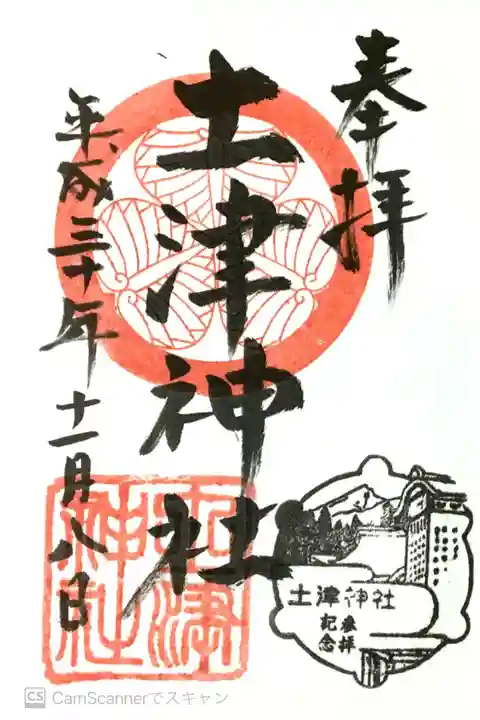 奉拝
土津神社
平成三十年十一月八日
土津神社
土津神社
参拝
記念
CS CamScannerでスキャン